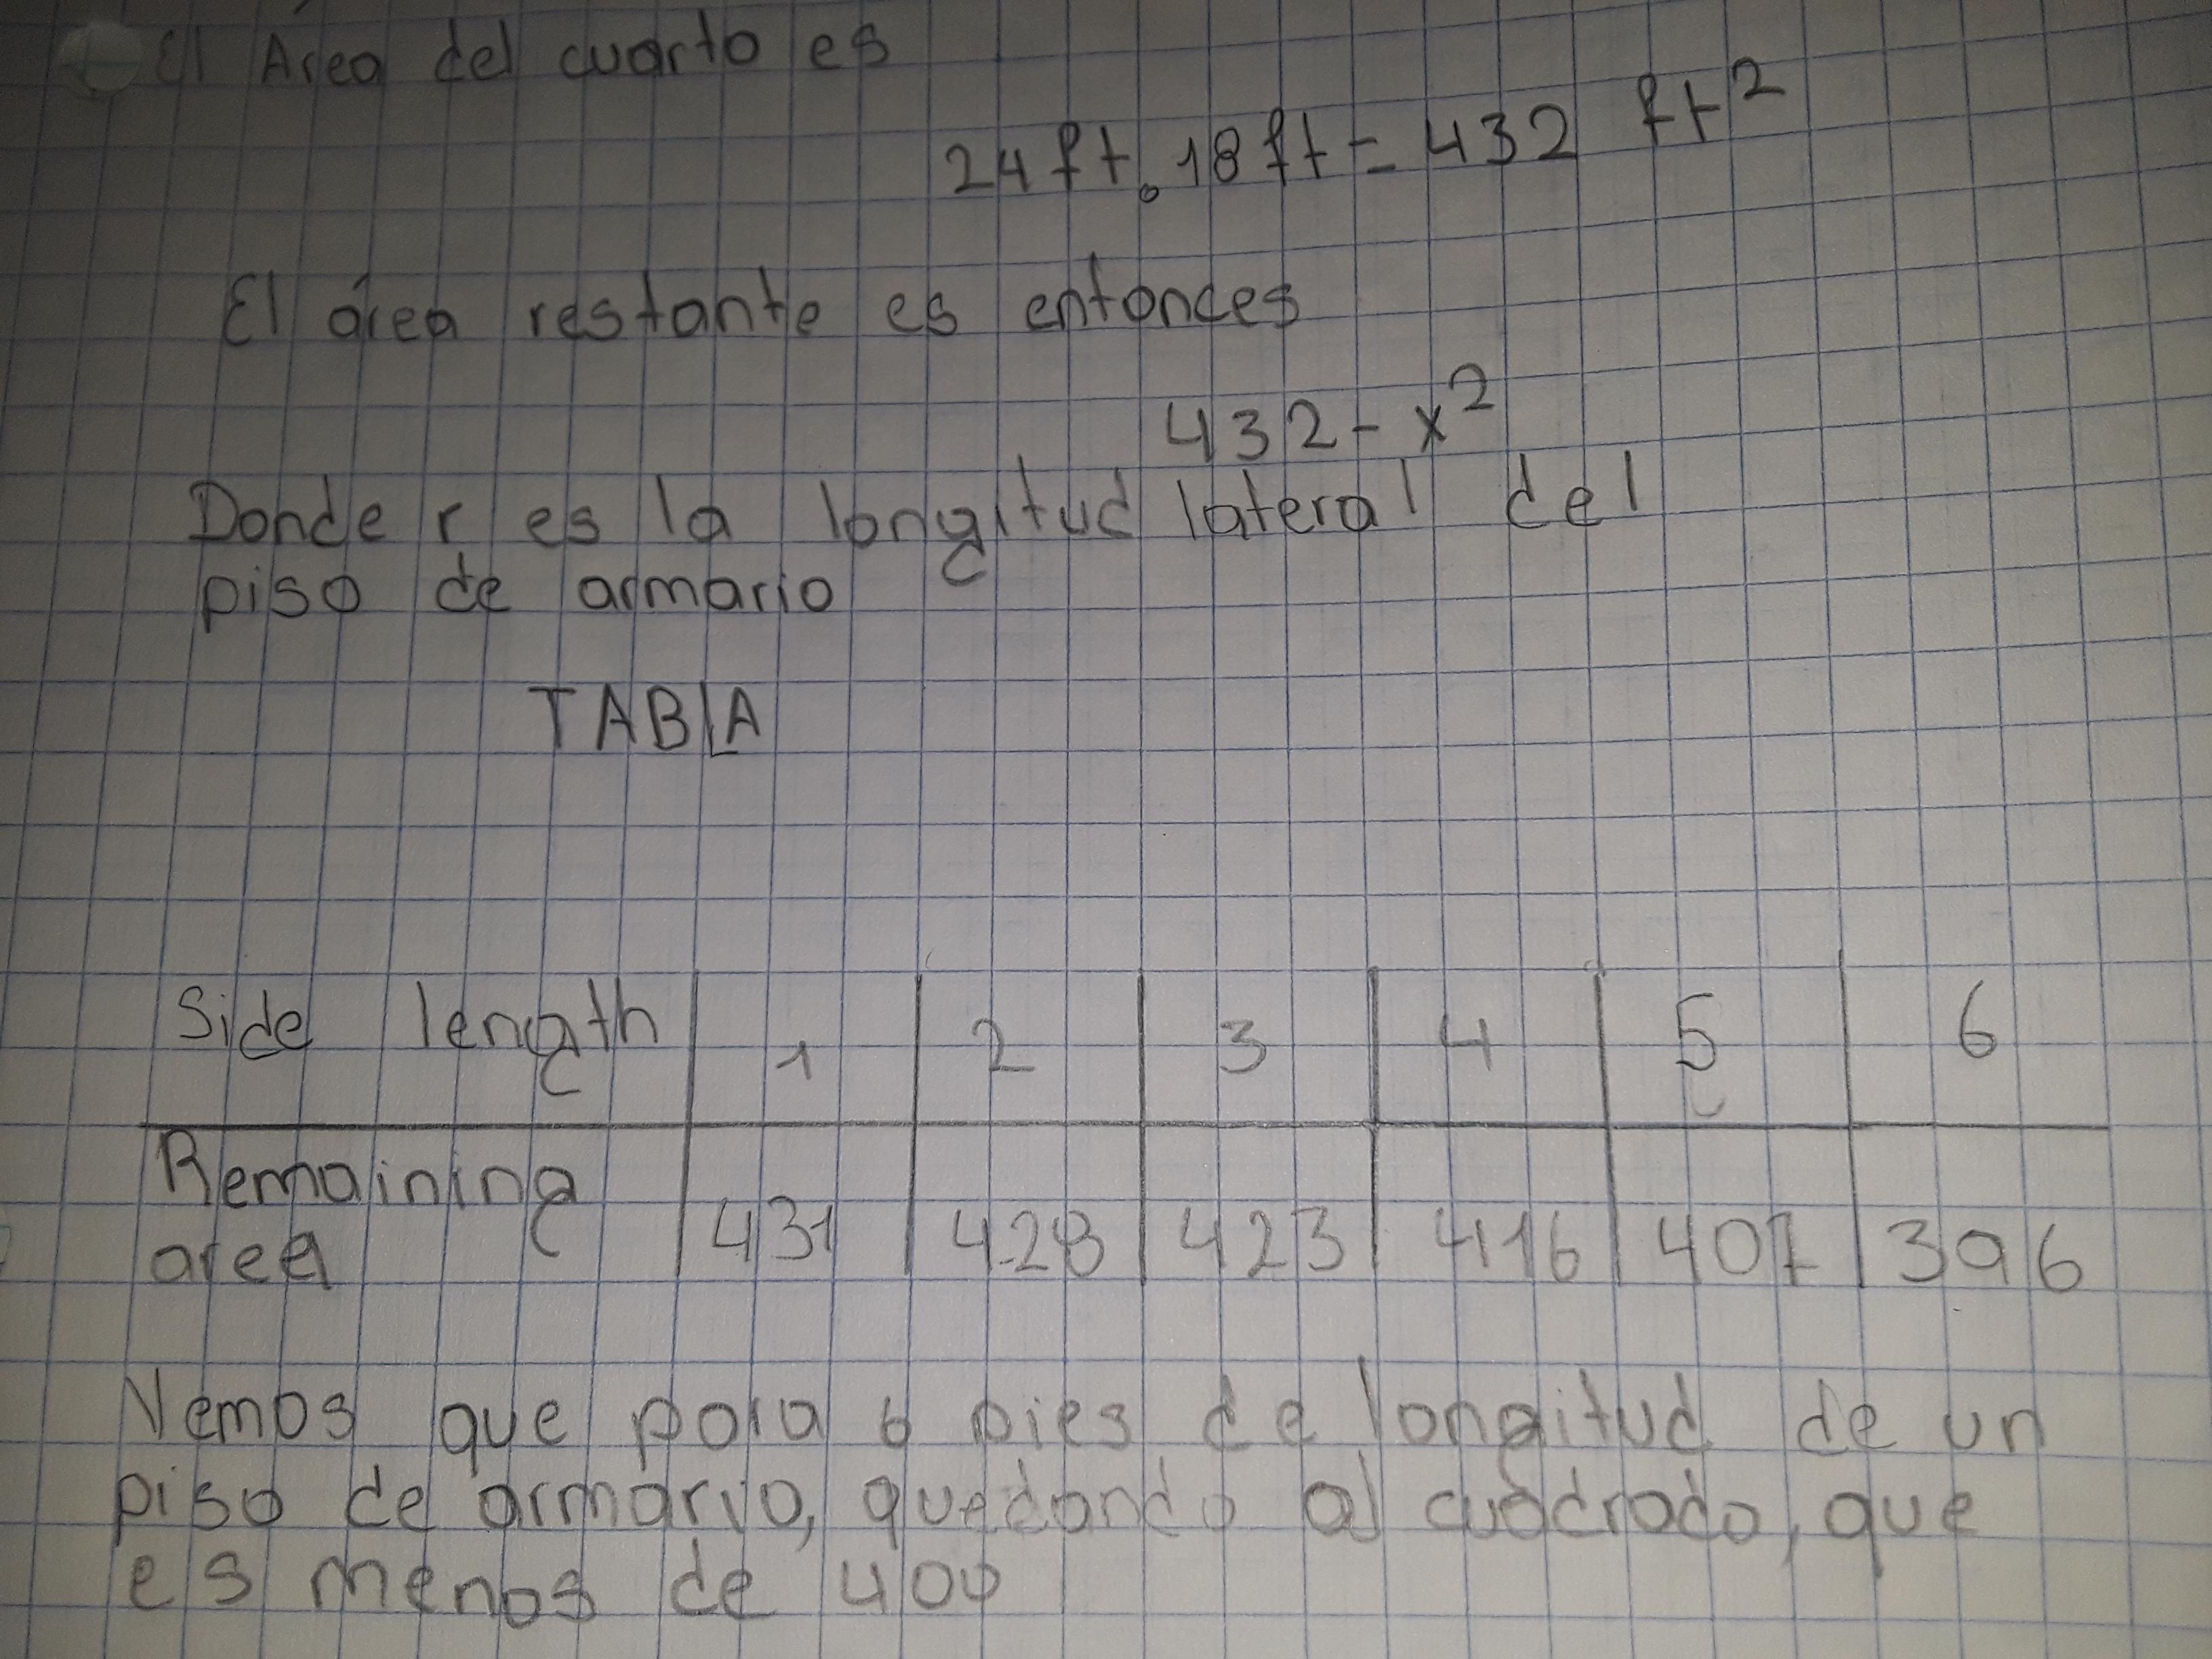 El Area del cuarto es
24ft.18ft = 432 ft²
El área restante es entonces
432 - x²
Donde r es la longitud lateral del
piso de armario
TABLA
Side length 1 2 3 4 5 6
Remaining
area 431 428 423 416 407 396
Vemos que para 6 pies de longitud de un
piso de armario, quedando al cuadrado, que
es menos de 400